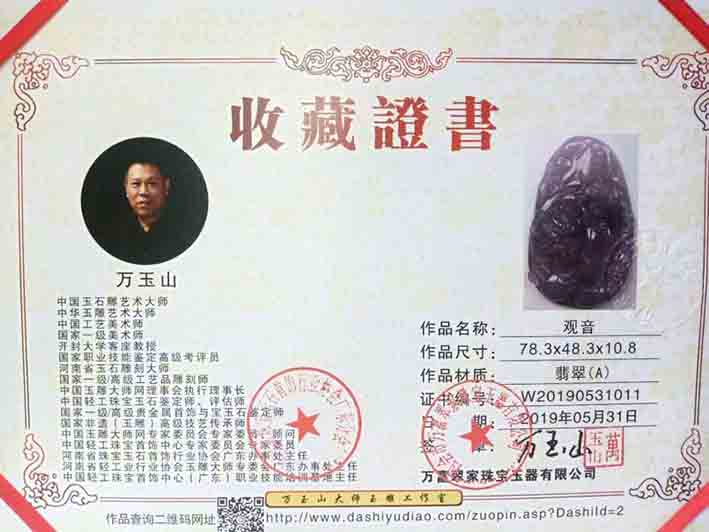 收藏證書
万玉山
中国玉石雕艺术大师
中华玉雕艺术大师
中国工艺美术师
国家一级美术师
开封大学客座教授
国家职业技能鉴定高级考评员
河南省玉石雕刻大师
国家一级/高级工艺品雕刻师
中国玉雕大师网理事会执行理事长
中国轻工珠宝玉石鉴定师、评估师
国家一级/高级贵金属首饰与宝玉石鉴定师
国家非遗（玉雕）高级技艺传承师
中国玉雕大师网专家委员会专家委员、顾问
中国轻工珠宝首饰中心专家委员会专家委员
河南省珠宝玉石首饰行业协会广东办事处主任
河南省轻工业行业协会玉雕大师专委会广东办事处主任
中国轻工珠宝首饰中心（广东）职业技能培训基地主任
作品名称: 观音
作品尺寸: 78.3x48.3x10.8
作品材质: 翡翠(A)
证书编号: W20190531011
日期: 2019年05月31日
万玉山
万富翠家珠宝玉器有限公司
万玉山大师玉雕工作室
作品查询二维码网址
http://www.dashiyudiao.com/zuopin.asp?DashiId=2